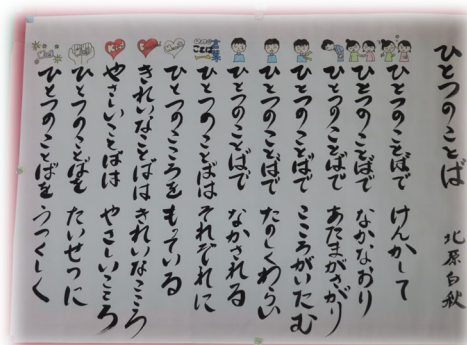 ひとつのことば
北原白秋
ひとつのことばで けんかして
ひとつのことばで なかなおり
ひとつのことばで あたまがさがり
ひとつのことばで こころがいたむ
ひとつのことばで たのしくわらい
ひとつのことばで なかされる
ひとつのことばは それぞれに
ひとつのこころを もっている
きれいなことばは きれいなこころ
やさしいことばは やさしいこころ
ひとつのことばを たいせつに
ひとつのことばを うつくしく